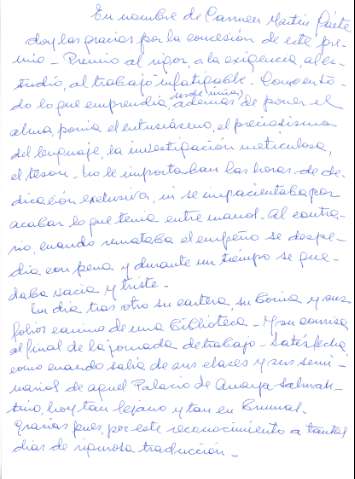 En nombre de Carmen Martín Gaite
doy las gracias por la concesión de este pre-
mio - Premio al rigor, a la exigencia, al es-
tudio, al trabajo infatigable. Como en to-
do lo que emprendía, además de poner el
alma ponía el entusiasmo, el preciosismo
del lenguaje, la investigación meticulosa,
el tesón. No le importaban las horas de de-
dicación exclusiva, ni se impacientaba por
acabar lo que tenía entre manos. Al contra-
rio, cuando remataba el empeño se despe-
día con pena y durante un tiempo se que-
daba vacía y triste.
Un día tras otro su cartera, su boina y sus
folios camino de una Biblioteca - Y su sonrisa
al final de la jornada de trabajo - Satisfecha
como cuando salía de sus clases y sus semi-
narios de aquel Palacio de Anaya Salman-
tino, hoy tan lejano y tan
Gracias pues, por este reconocimiento a tantos
días de rigurosa traducción -